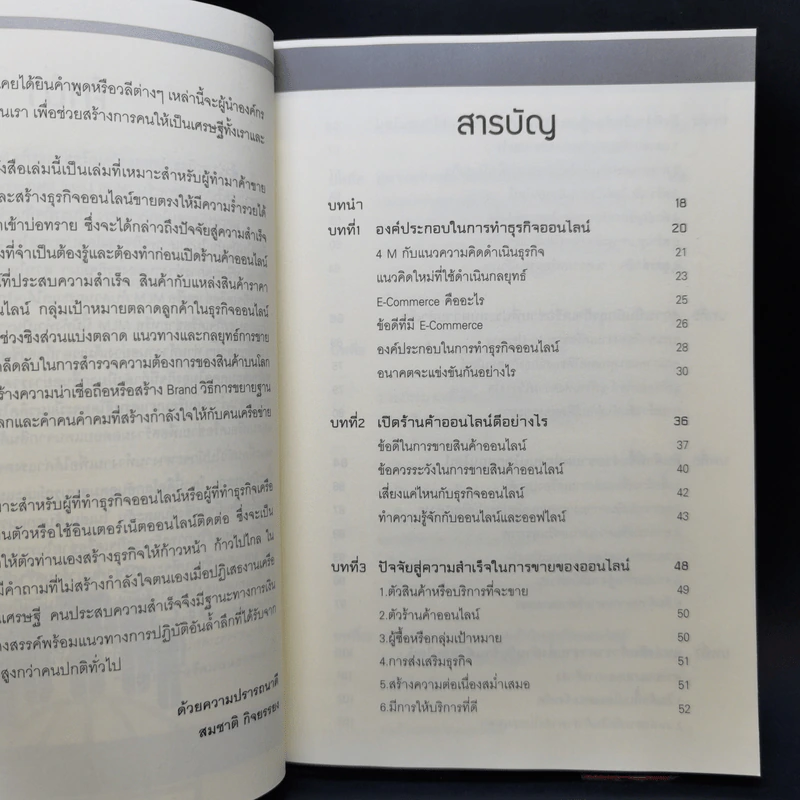 คยได้ยินคำพูดหรือวลีต่างๆ เหล่านี้จะผู้นำองค์กร
นเรา เพื่อช่วยสร้างการคนให้เป็นเศรษฐีทั้งเราและ
งสือเล่มนี้เป็นเล่มที่เหมาะสำหรับผู้ทำมาค้าขาย
ละสร้างธุรกิจออนไลน์ขายตรงให้มีความร่ำรวยได้
เข้าบ่อทราย ซึ่งจะได้กล่าวถึงปัจจัยสู่ความสำเร็จ
งที่จำเป็นต้องรู้และต้องทำก่อนเปิดร้านค้าออนไลน์
ที่ประสบความสำเร็จ สินค้ากับแหล่งสินค้าราคา
ไลน์ กลุ่มเป้าหมายตลาดลูกค้าในธุรกิจออนไลน์
ช่วงชิงส่วนแบ่งตลาด แนวทางและกลยุทธ์การขาย
ล็ดลับในการสำรวจความต้องการของสินค้าบนโลก
ร้างความน่าเชื่อถือหรือสร้าง Brand วิธีการขยายฐาน
ลกและคำคนคำคมที่สร้างกำลังใจให้กับคนเครือข่าย
มาะสำหรับผู้ที่ทำธุรกิจออนไลน์หรือผู้ที่ทำธุรกิจเครือ
นตัวหรือใช้อินเตอร์เน็ตออนไลน์ติดต่อ ซึ่งจะเป็น
ให้ตัวท่านเองสร้างธุรกิจให้ก้าวหน้า ก้าวไปไกล ใน
มีคำถามที่ไม่สร้างกำลังใจตนเองเมื่อปฏิเสธงานเครือ
เศรษฐี คนประสบความสำเร็จจึงมีฐานะทางการเงิน
งสรรค์พร้อมแนวทางการปฏิบัติอันล้ำลึกที่ได้รับจาก
สูงกว่าคนปกติทั่วไป
ด้วยความปรารถนาดี
สมชาติ กิจยรรยง
สารบัญ
บทนำ 18
บทที่1 องค์ประกอบในการทำธุรกิจออนไลน์ 20
4 M กับแนวความคิดดำเนินธุรกิจ 21
แนวคิดใหม่ที่ใช้ดำเนินกลยุทธ์ 23
E-Commerce คืออะไร 25
ข้อดีที่มี E-Commerce 26
องค์ประกอบในการทำธุรกิจออนไลน์ 28
อนาคตจะแข่งขันกันอย่างไร 30
บทที่2 เปิดร้านค้าออนไลน์ดีอย่างไร 36
ข้อดีในการขายสินค้าออนไลน์ 37
ข้อควรระวังในการขายสินค้าออนไลน์ 40
เสี่ยงแค่ไหนกับธุรกิจออนไลน์ 42
ทำความรู้จักกับออนไลน์และออฟไลน์ 43
บทที่3 ปัจจัยสู่ความสำเร็จในการขายของออนไลน์ 48
1.ตัวสินค้าหรือบริการที่จะขาย 49
2.ตัวร้านค้าออนไลน์ 50
3.ผู้ซื้อหรือกลุ่มเป้าหมาย 50
4.การส่งเสริมธุรกิจ 51
5.สร้างความต่อเนื่องสม่ำเสมอ 51
6.มีการให้บริการที่ดี 52